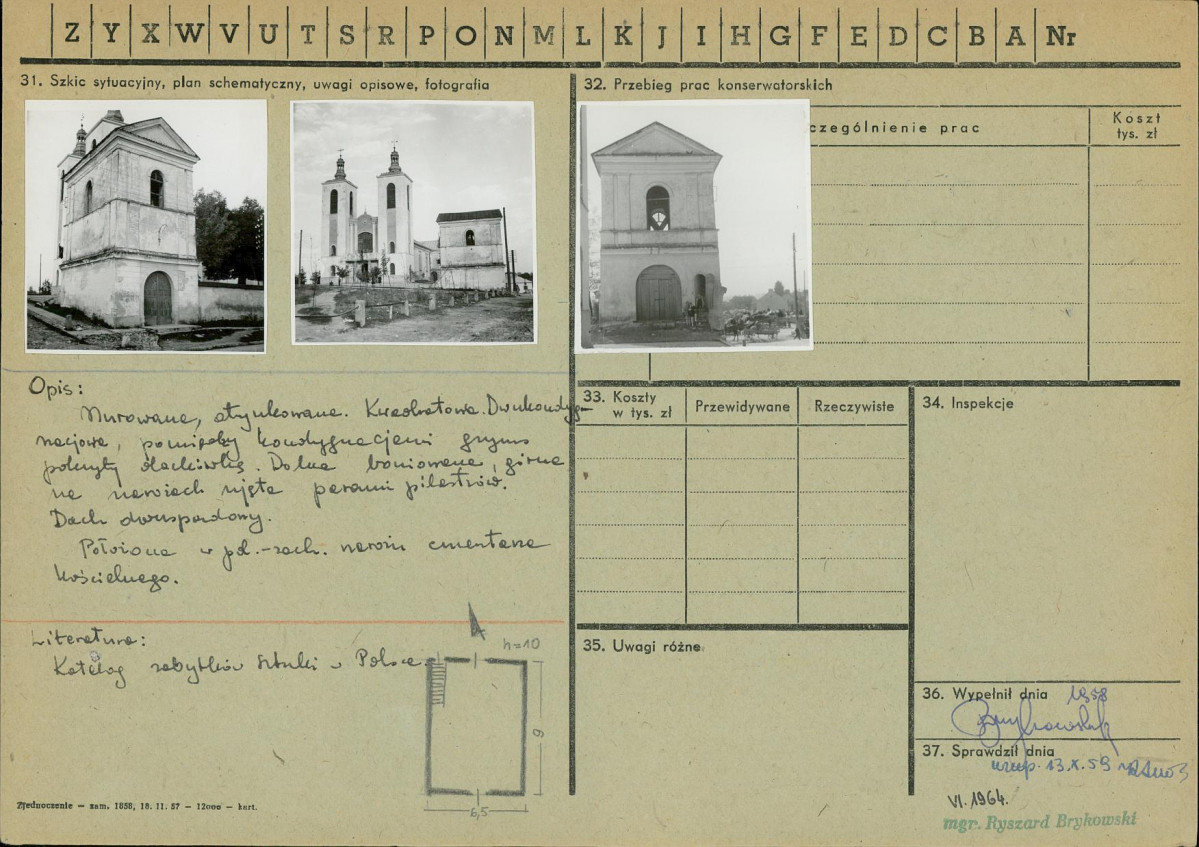 Z Y X W V U T S R P O N M L K J I H G F E D C B A Nr
31. Szkic sytuacyjny, plan schematyczny, uwagi opisowe, fotografia
32. Przebieg prac konserwatorskich
czególnienie prac
Koszt
tys. zł
Opis:
Murowana, otynkowana. Kwadratowa. Dwukondyg-
nacjowa, pomiędzy kondygnacjami gzyms
pokryty dachówką. Dolna boniowana, górna
na narożach ujęta parami pilastrów.
Dach dwuspadowy.
Położona w pd.-zach. narożu cmentarza
kościelnego.
Literatura:
Katalog zabytków Sztuki w Polsce.
h=10
9
6,5
33. Koszty
w tys. zł
Przewidywane
Rzeczywiste
34. Inspekcje
35. Uwagi różne
36. Wypełnił dnia 1958
Brykowski
37. Sprawdził dnia
13.X.59
VI.1964.
mgr. Ryszard Brykowski
Zjednoczenie — zam. 1858, 18. 11. 57 — 12000 — kart.